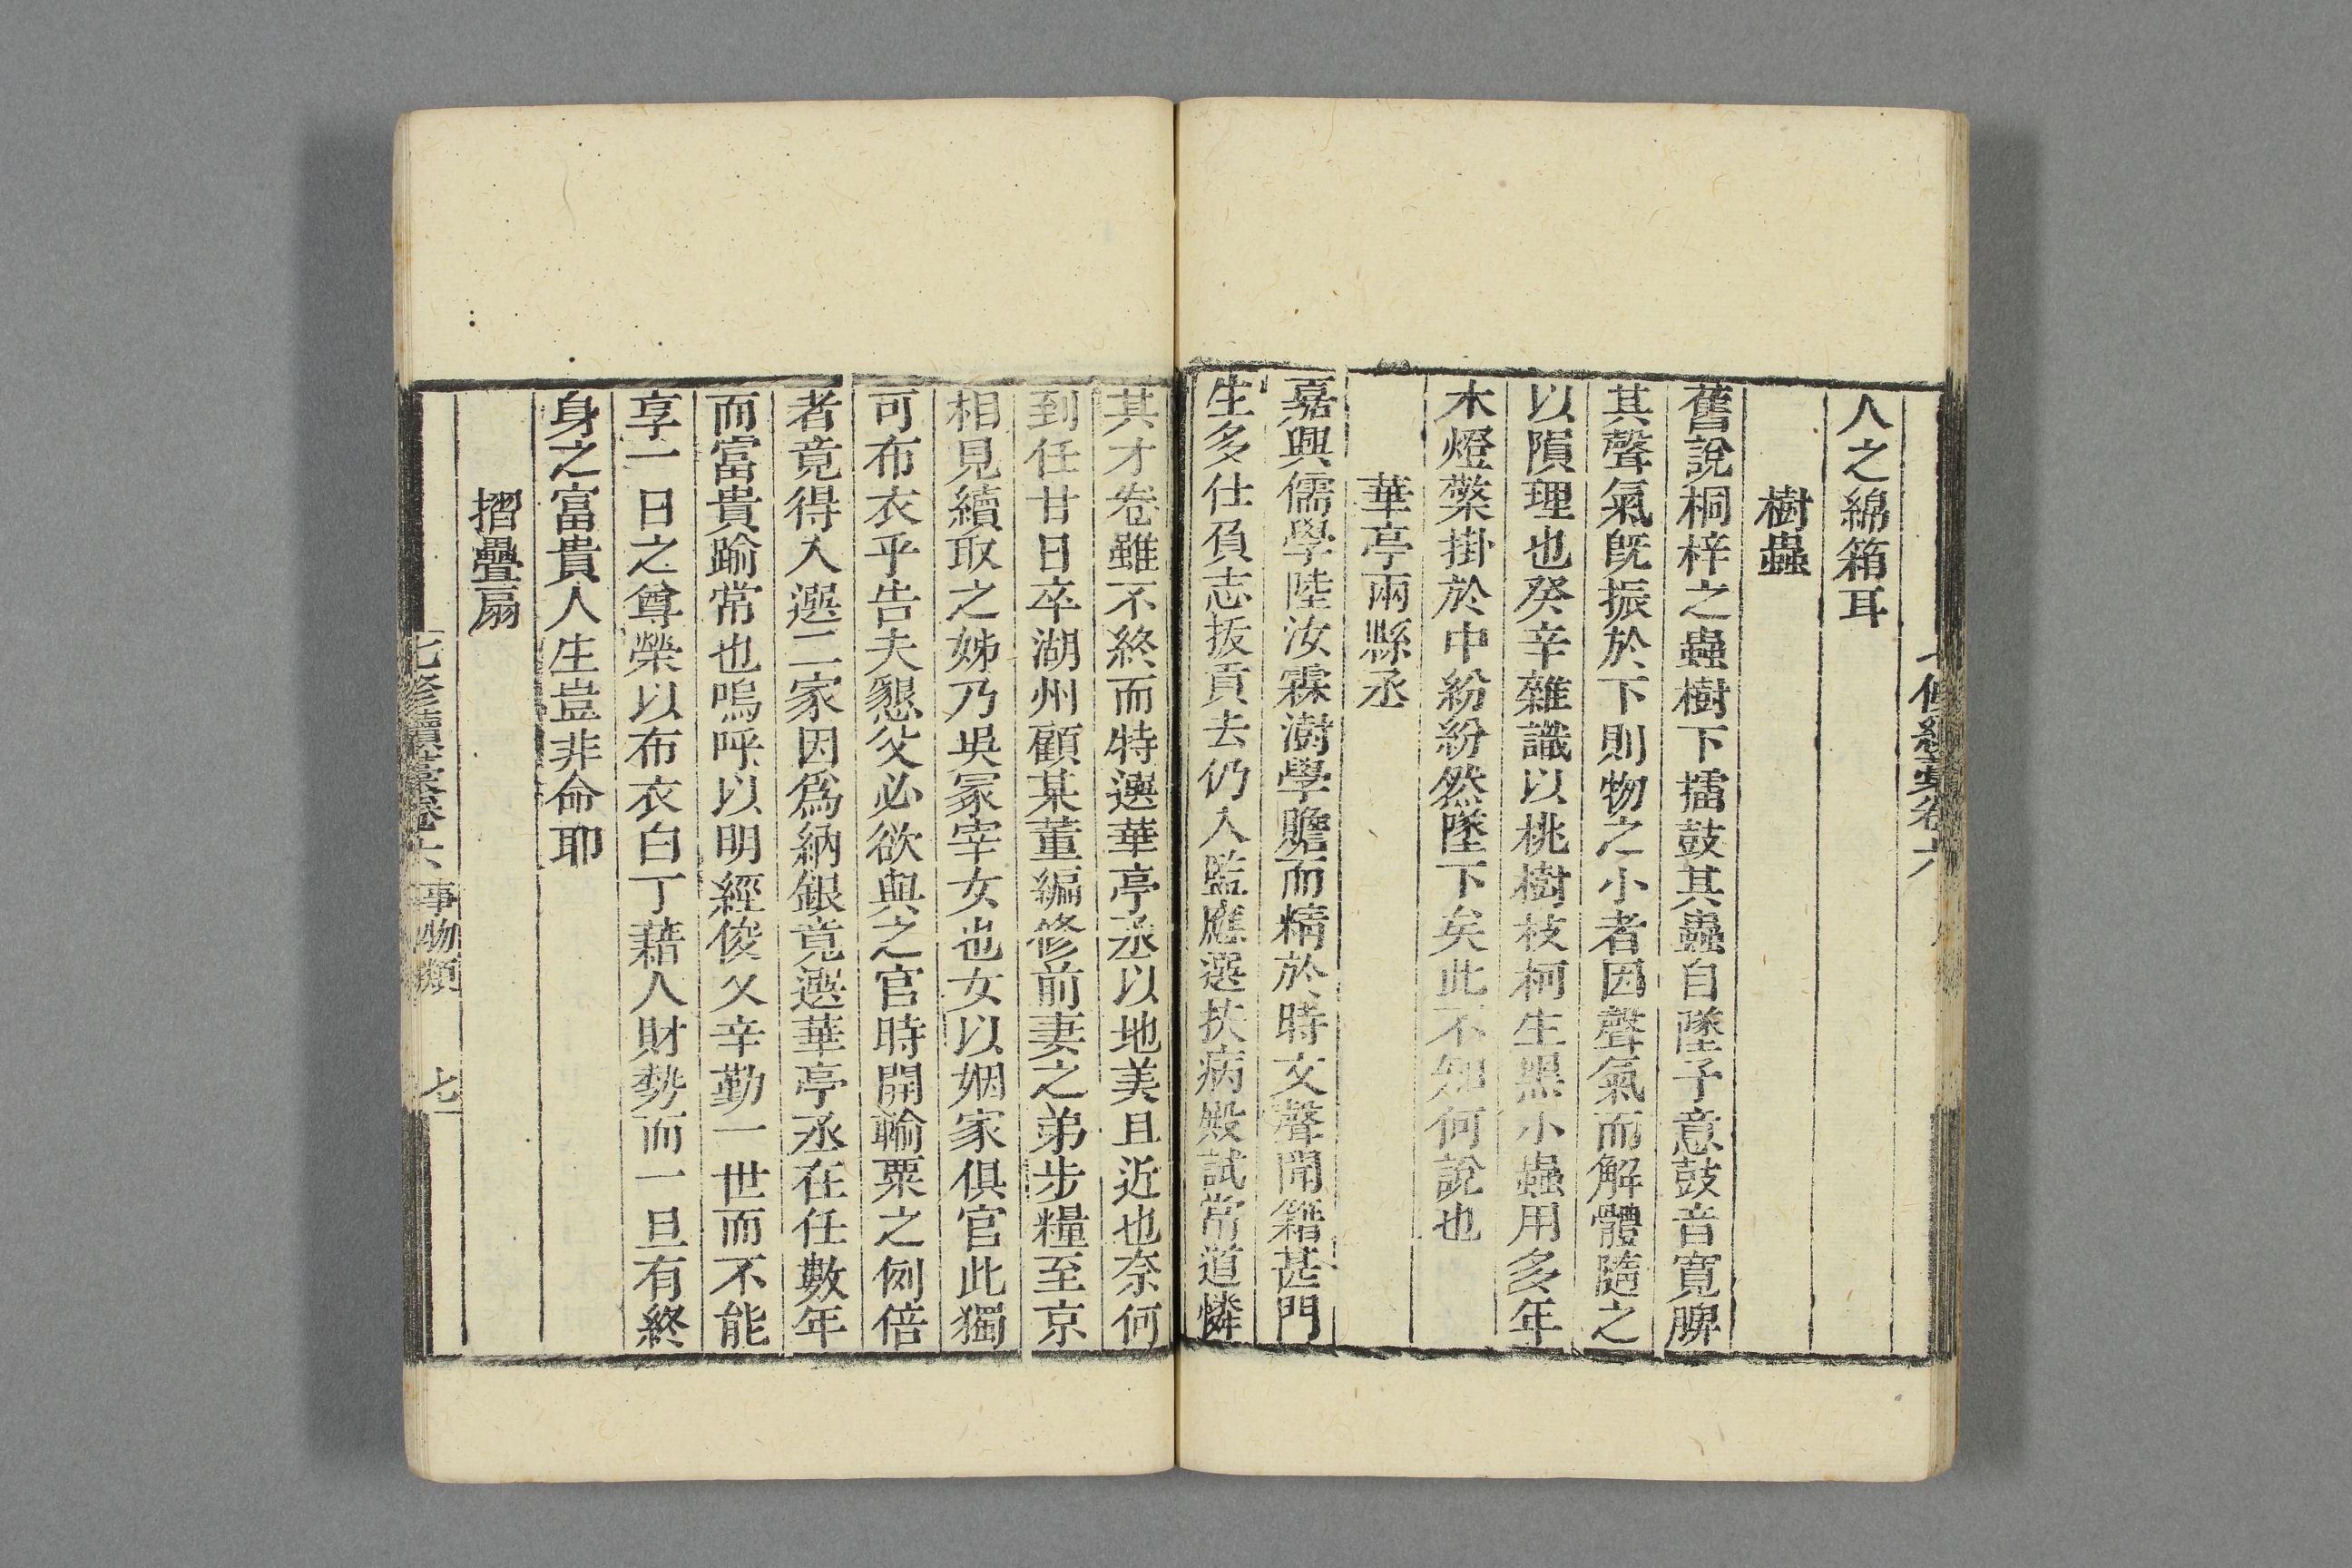 人之綿箱耳
樹蟲
舊說桐梓之蟲樹下擂鼓其蟲自墜予意鼓音寬脾
其聲氣旣振於下則物之小者因聲氣而解體隨之
以隕理也癸辛雜識以桃樹枝柯生黑小蟲用多年
木燈檠掛於中紛紛然墜下矣此不知何說也
華亭兩縣丞
嘉興儒學陸汝霖澍學贍而精於時文聲聞籍甚門
生多仕負志拔貢去仍入監應選扶病殿試常道憐
其才卷雖不終而特選華亭丞以地美且近也奈何
到任廿日卒湖州顧某董編修前妻之弟步糧至京
相見續取之姊乃吳冢宰女也女以姻家俱官此獨
可布衣乎告夫懇父必欲與之官時開輸粟之例倍
者竟得入選二家因爲納銀竟選華亭丞在任數年
而富貴踰常也嗚呼以明經俊乂辛勤一世而不能
享一日之尊榮以布衣白丁藉人財勢而一旦有終
身之富貴人生豈非命耶
摺疊扇
七修續藁卷六 事物類 七